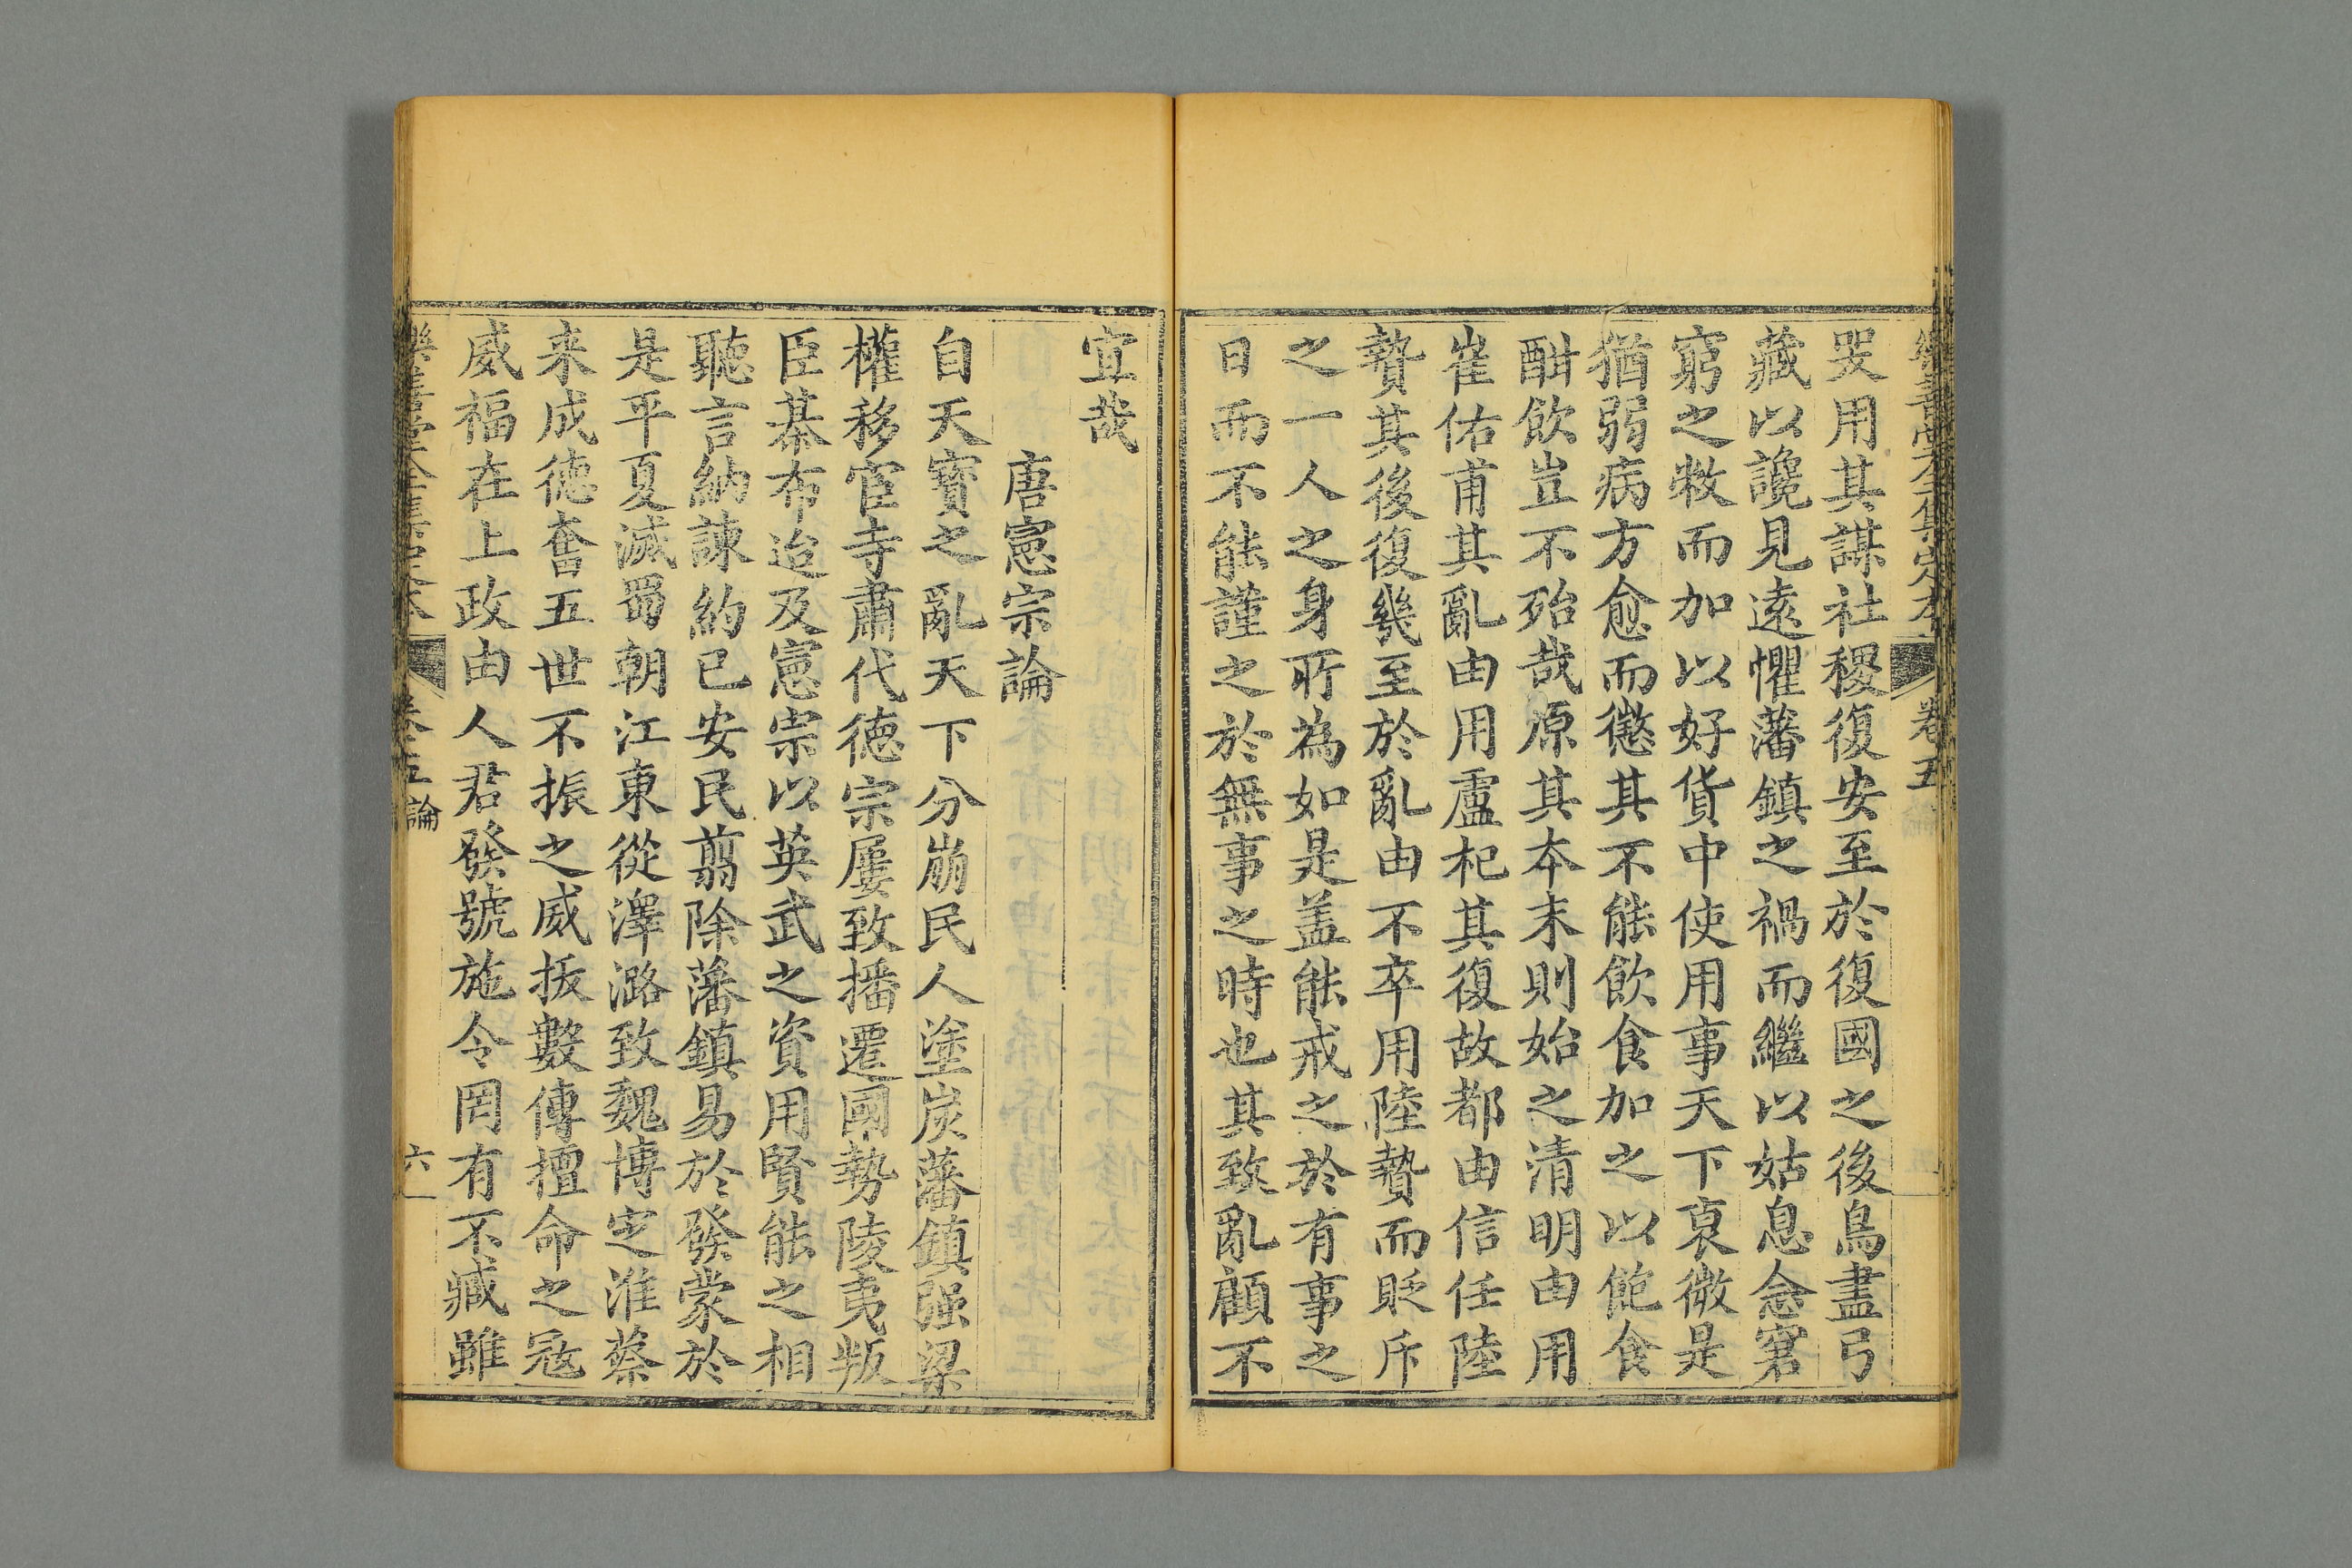 樂善堂全集定本 卷五
哭用其謀社稷復安至於復國之後鳥盡弓
藏以讒見逺懼藩鎮之禍而繼以姑息念窘
窮之敝而加以好貨中使用事天下衰微是
猶弱病方愈而懲其不能飲食加之以飽食
酣飲豈不殆哉原其本末則始之清明由用
崔佑甫其亂由用盧杞其復故都由信任陸
贄其後復幾至於亂由不卒用陸贄而貶斥
之一人之身所為如是盖能戒之於有事之
日而不能謹之於無事之時也其致亂顧不
宜哉
唐憲宗論
自天寶之亂天下分崩民人塗炭藩鎮强梁
權移宦寺肅代徳宗屢致播遷國勢陵夷叛
臣棊布迨及憲宗以英武之資用賢能之相
聽言納諫約已安民翦除藩鎮易於發蒙於
是平夏滅蜀朝江東從澤潞致魏博定淮蔡
来成徳奮五世不振之威拔數傳擅命之冦
威福在上政由人君發號施令罔有不臧雖
樂善堂全集定本 卷五 論 六